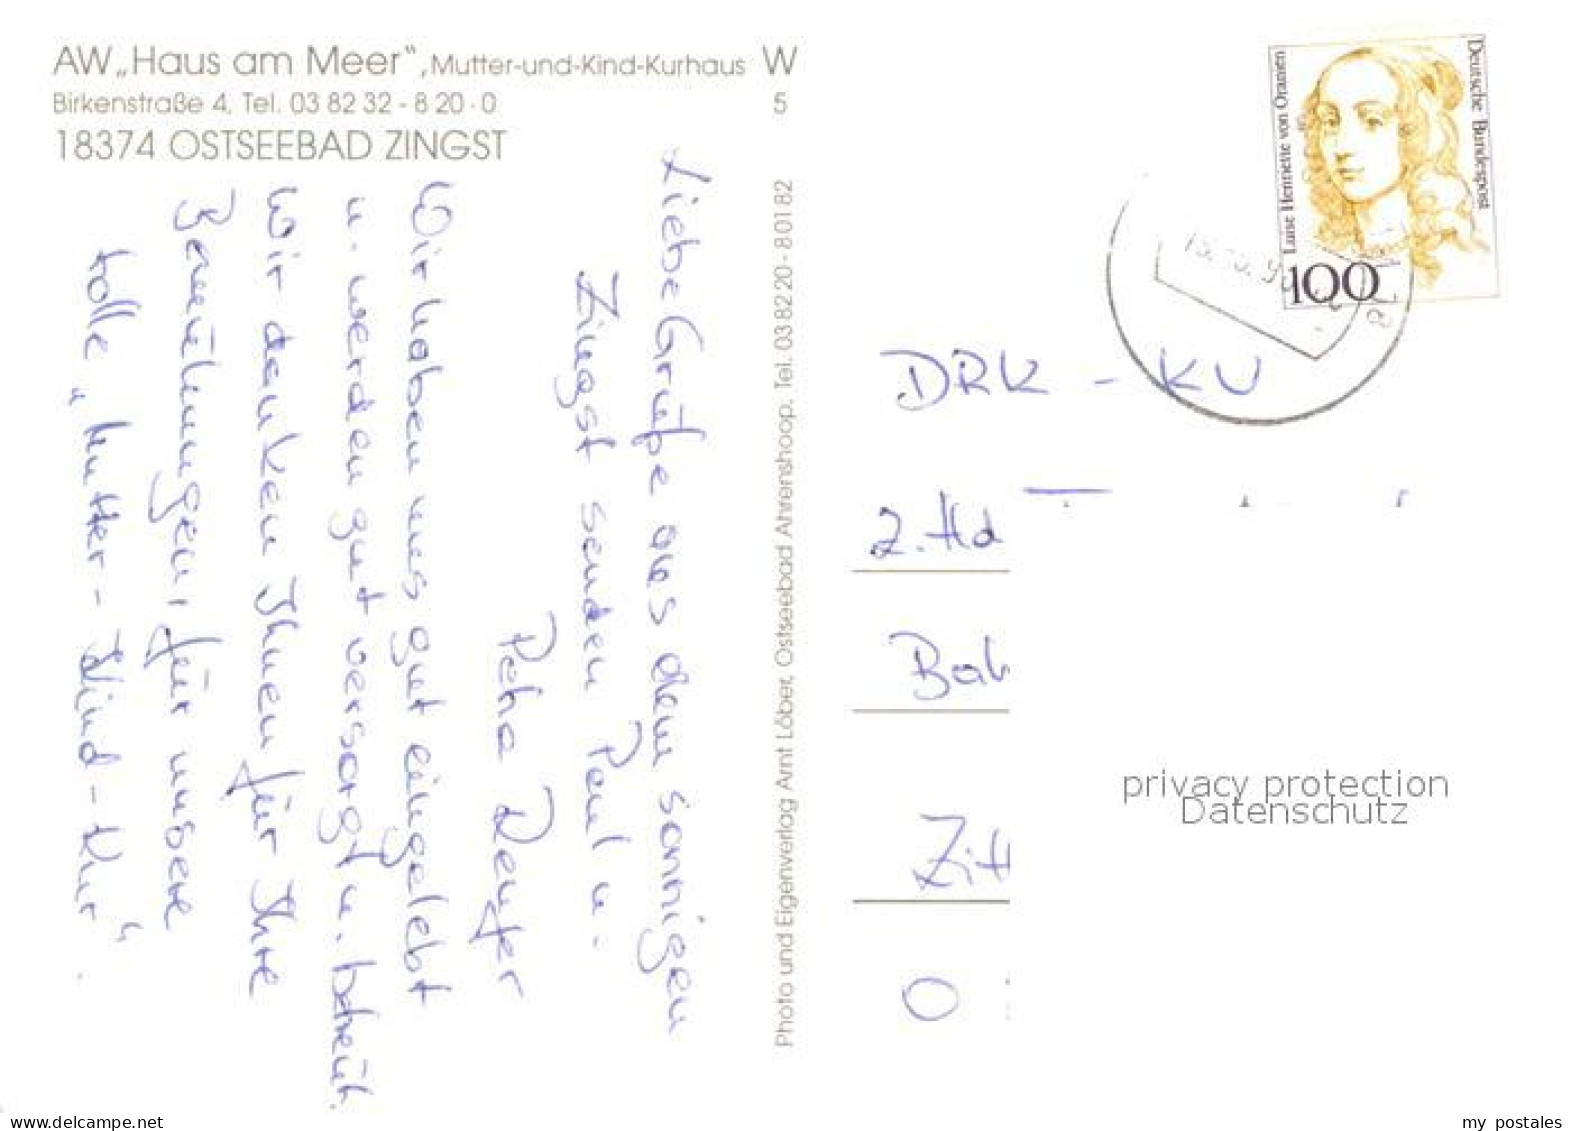 AW„Haus am Meer“, Mutter-und-Kind-Kurhaus W
Birkenstraße 4, Tel. 03 82 32 - 8 20 - 0 5
18374 OSTSEEBAD ZINGST
Liebe Grüße aus dem sonnigen
Zingst senden Paul u.
Petra
Wir haben uns gut eingelebt
u. werden gut versorgt u. betreut.
Wir danken Ihnen für Ihre
Bemühungen, für unsere
tolle „Mutter-Kind-Kur“.
Photo und Eigenverlag Arnt Löber, Ostseebad Ahrenshoop, Tel. 03 82 20 - 8 01 82
Luise Henriette von Oranien
Deutsche Bundespost
100
DRK - KV
z. Hd
Bah
Zitt
O
privacy protection
Datenschutz
www.delcampe.net
my_postales